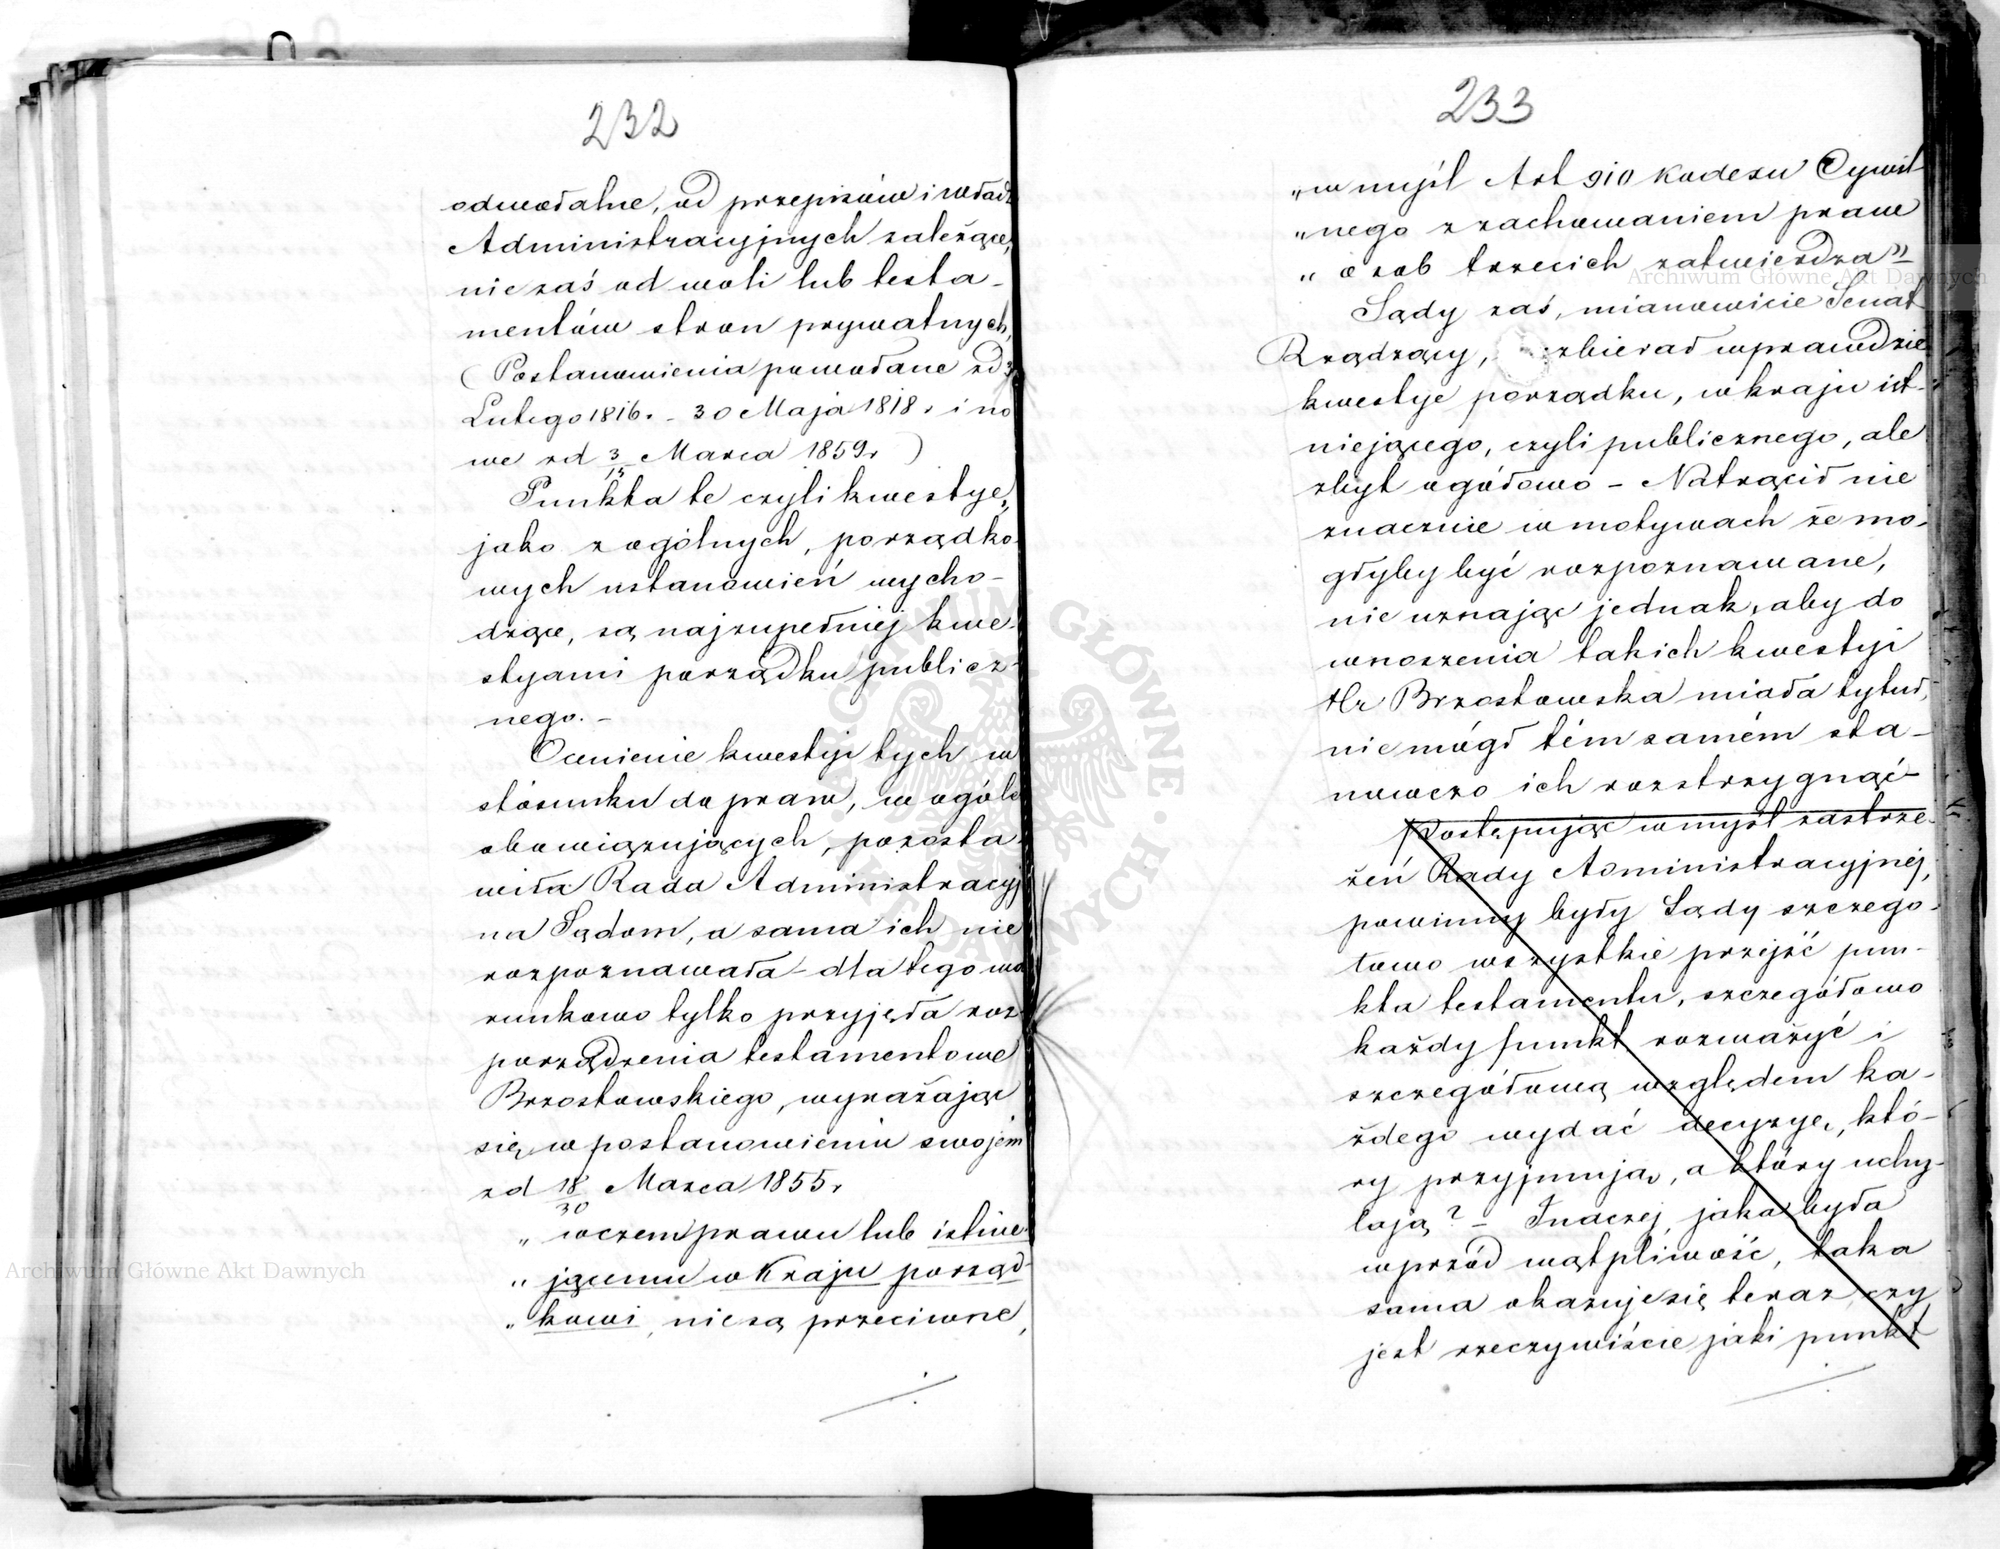 232
odwołalne, od przepisów i władz
Administracyjnych zależące,
nie zaś od woli lub testa-
mentów stron prywatnych,
(Postanowienia powołane z d 3
Lutego 1816. - 30 Maja 1818. i no
we z d 3/15 Marca 1859r )
Punkta te czyli kwestye,
jako z ogólnych, porządko-
wych ustanowień wycho-
dzące, są najzupełniej kwe-
styami porządku publicz-
nego. -
Ocenienie kwestyi tych w
stósunku do praw, w ogóle
obowiązujących, pozosta-
wiła Rada Administracyj
na Sądom, a sama ich nie
rozpoznawała - dla tego wa
runkowo tylko przyjęła roz-
porządzenia testamentowe
Brzostowskiego, wyrażając
się w postanowieniu swojém
z d 18/30 Marca 1855r
„ w czem prawu lub istnie-
„ jącemu w Kraju porząd-
„ kowi, nie są przeciwne,
233
„ w myśl Art 910 kodexu Cywil-
„ nego z zachowaniem praw
„ osób trzecich zatwierdza"
Sądy zaś, mianowicie Senat
Rządzący, rozbierał wprawdzie
kwestye porządku, w kraju ist-
niejącego, czyli publicznego, ale
zbyt ogółowo - Natrącił nie
znacznie w motywach że mo-
głyby być rozpoznawane,
nie uznając jednak, aby do
wnoszenia takich kwestyi
Hr Brzostowska miała tytuł,
nie mógł tém samém sta-
nowczo ich rozstrzygnąć -
Postępując w myśl zastrze-
żeń Rady Administracyjnéj,
powinny były Sądy szczegó-
łowo wszystkie przejść pun-
kta testamentu, szczegółowo
każdy punkt rozważyć i
szczegółową względem ka-
żdego wydać decyzye, któ-
ry przyjmują, a który uchy-
lają? - Inaczej, jaka była
wprzód wątpliwość, taka
sama okazuje się teraz, czy
jest rzeczywiście jaki punkt
Archiwum Główne Akt Dawnych
Archiwum Główne Akt Dawnych
ARCHIWUM GŁÓWNE · AKT DAWNYCH ·